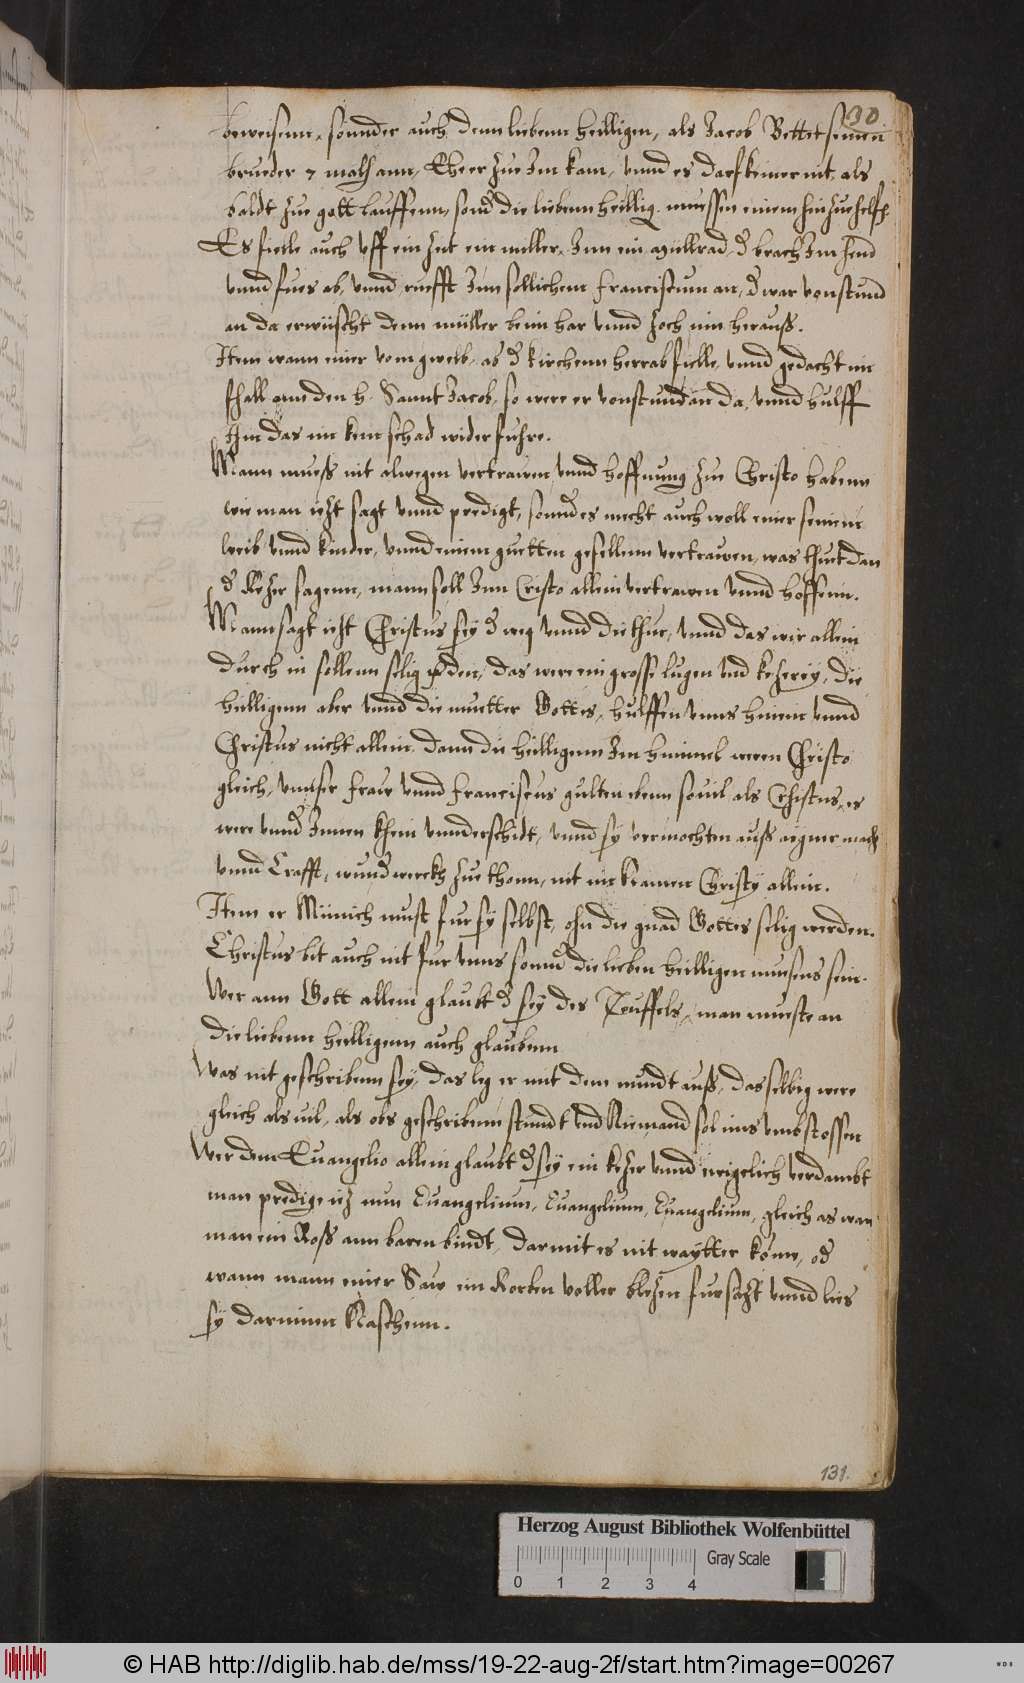 130
beweisenn, sonnder auch denn liebenn heilligen, als Jacob Bettet seinen
brueder 7 malh ann, Ehe er zue Im kam, vnnd es darf keiner nit als
baldt zue gott lauffenn, sond die liebenn heillig. muessen einem hinzue helf
Es fielle auch vff ein Zeit ein miller Inn ein müllrad, d brach Im hend
vnnd fues ab, vnnd ruefft Inn sollichem Franciscum an, d war von stund
an da erwüscht denn müller beim har vnnd zoch inn herauß.
Item wann einer vom gwelb, ab d kirchenn herrab fielle, vnnd gedacht im
fhall ann den h. Sannt Jacob, so were er von stund an da, vnnd hulff
Im das im kein schad widerfuhre.
Mann mueß nit alwegen vertrawen vnnd hoffnung zue Christo habenn
wie man iezt sagt vnnd predigt, sonnd es mecht auch woll einer seinem
weib vnnd kinder, vnnd einem guetten gesellenn vertrawen, was thuet dan
d Kezer sagenn, mann soll Inn Cristo allein vertrawen vnnd hoffenn.
Mann sagt iezt Christus sey d weg vnnd die thur, vnnd das wir allein
durch in sollenn selig werden, das were ein grosse lugen vnd kezerey, die
heilligenn aber vnnd die muetter Gottes, hulffen vnns hinein vnnd
Christus nicht allein. dann die heilligenn Im himmel weren Christo
gleich, vnnser fraw vnnd Franciscus gulten ebenn souil als Christus, es
were vnnd Innen khein vnnderschidt, vnnd sy vermochten auß aigner mach
vnnd Crafft, wunderwerckh zue thonn, nit im Namen Christy allein.
Item er Münich must fur sy selbst, ohn die gnad Gottes selig werden.
Christus bit auch nit fur vnns sonnd die lieben heilligen muesens sein.
Wer ann Gott allein glaubt d sey des Teuffels, man mueste an
die liebenn heilligenn auch glaubenn
Was nit geschribenn sey, das leg er mit dem mundt auß, das selbig were
gleich als uil, als obs geschribenn stundt vnd Niemand sol ims vmbstossen
Wer dem Euangelio allein glaubt d sey ein kezer vnnd ewigelich verdambt
man predige iez nun Euangelium, Euangelium, Euangelium, gleich as wan
man ein Roß ann baren bindt, darmit es nit waytter kome, od
wann mann einer Saw ein Korben voller blezen fursazt vnnd lies
sy darinnen Naschenn.
131.
Herzog August Bibliothek Wolfenbüttel
Gray Scale
0 1 2 3 4
© HAB http://diglib.hab.de/mss/19-22-aug-2f/start.htm?image=00267